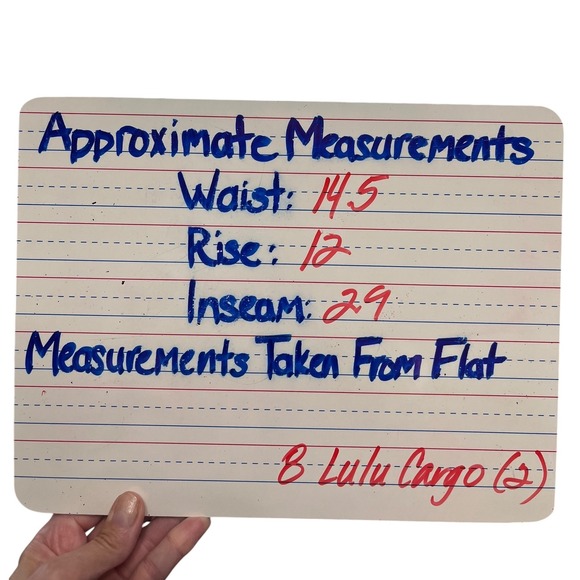 Approximate Measurements
Waist: 14.5
Rise: 12
Inseam: 29
Measurements Taken From Flat
8 Lulu Cargo (2)